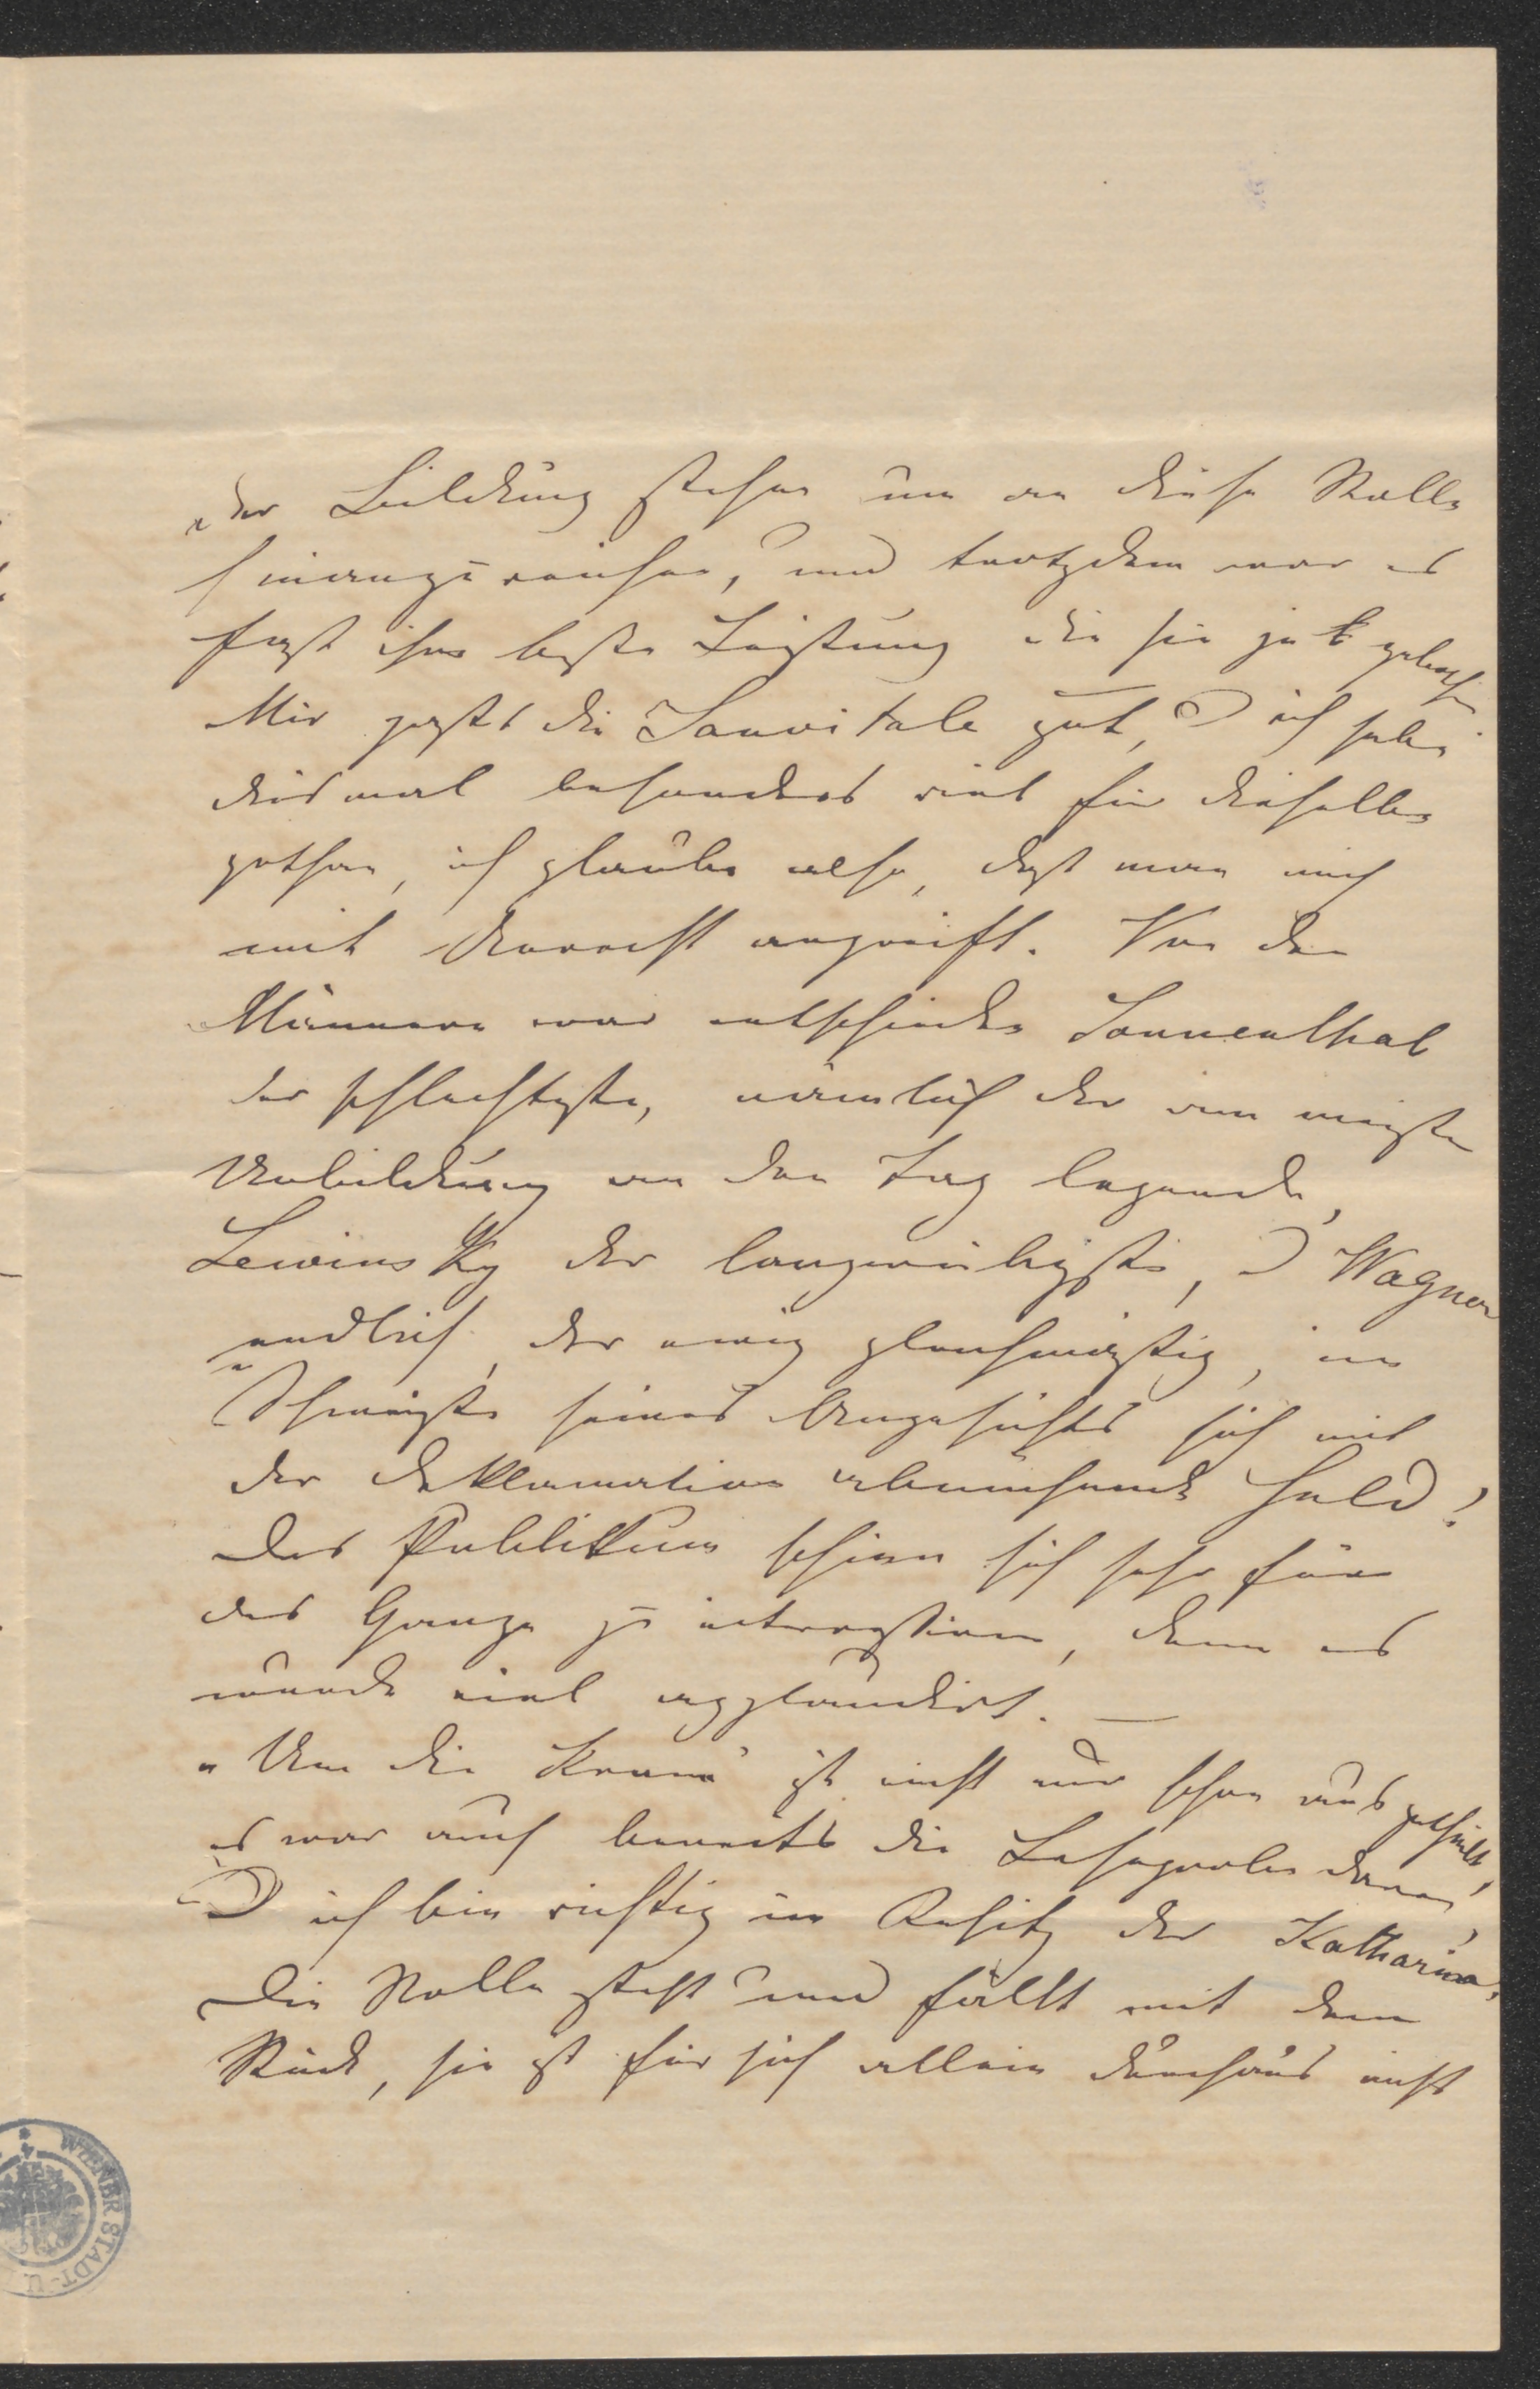 der Bildung stehen um an diese Rolle
hinanzureichen, und trotzdem war es
fast ihre beste Leistung die sie je
Mir paßt die Sanvitale gut, u ich habe
diesmal besonders viel für dieselbe
gethan, ich glaube also, daß man mich
mit Unrecht angreift. Von den
Männern war entschieden Sonnenthal
der schlechteste, nämlich der am meisten
Unbildung an den Tag legende,
Lewinsky der langweiligste, u Wagner
endlich, der ewig gleichmäßig, im
Schweiße seines Angesichts sich mit
der Deklamation abmühende Held!
Das Publikum schien sich sehr für
das Ganze zu interessiren, denn es
wurde viel applaudirt. —
„Um die Krone" ist nicht nur schon ausgetheilt,
es war auch bereits die Leseprobe davon,
u ich bin richtig im Besitz der Katharina,
Die Rolle steht und fällt mit dem
Stück, sie ist für sich allein durchaus nicht
WIENER STADT- U.